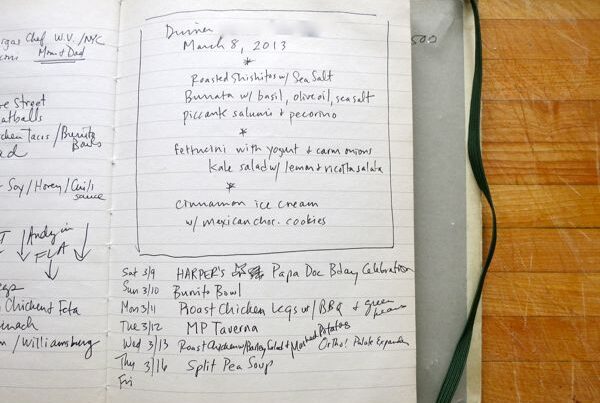 Chef W.V. / NYC
Mom + Dad
Street
Tacos / Burrito
Bowls
Soy / Honey / Chili
sauce
Andy in
FLA
Chicken + Feta
/ Williamsburg
Dinner
March 8, 2013
*
Roasted Shishitos w/ Sea Salt
Burrata w/ basil, olive oil, sea salt
piccante salumi + pecorino
*
fettucini with yogurt + caram onions
Kale salad w/ lemon + ricotta salata
*
cinnamon ice cream
w/ mexican choc. cookies
Sat 3/9 HARPER'S Papa Doc Bday Celebration
Sun 3/10 Burrito Bowl
Mon 3/11 Roast Chicken Legs w/ BBQ + green
beans
Tue 3/12 MP Taverna
Wed 3/13 Roast Chicken w/ Barley Salad + Mashed Potatoes Ortho! Palate Expander
Thu 3/16 Split Pea Soup
Fri